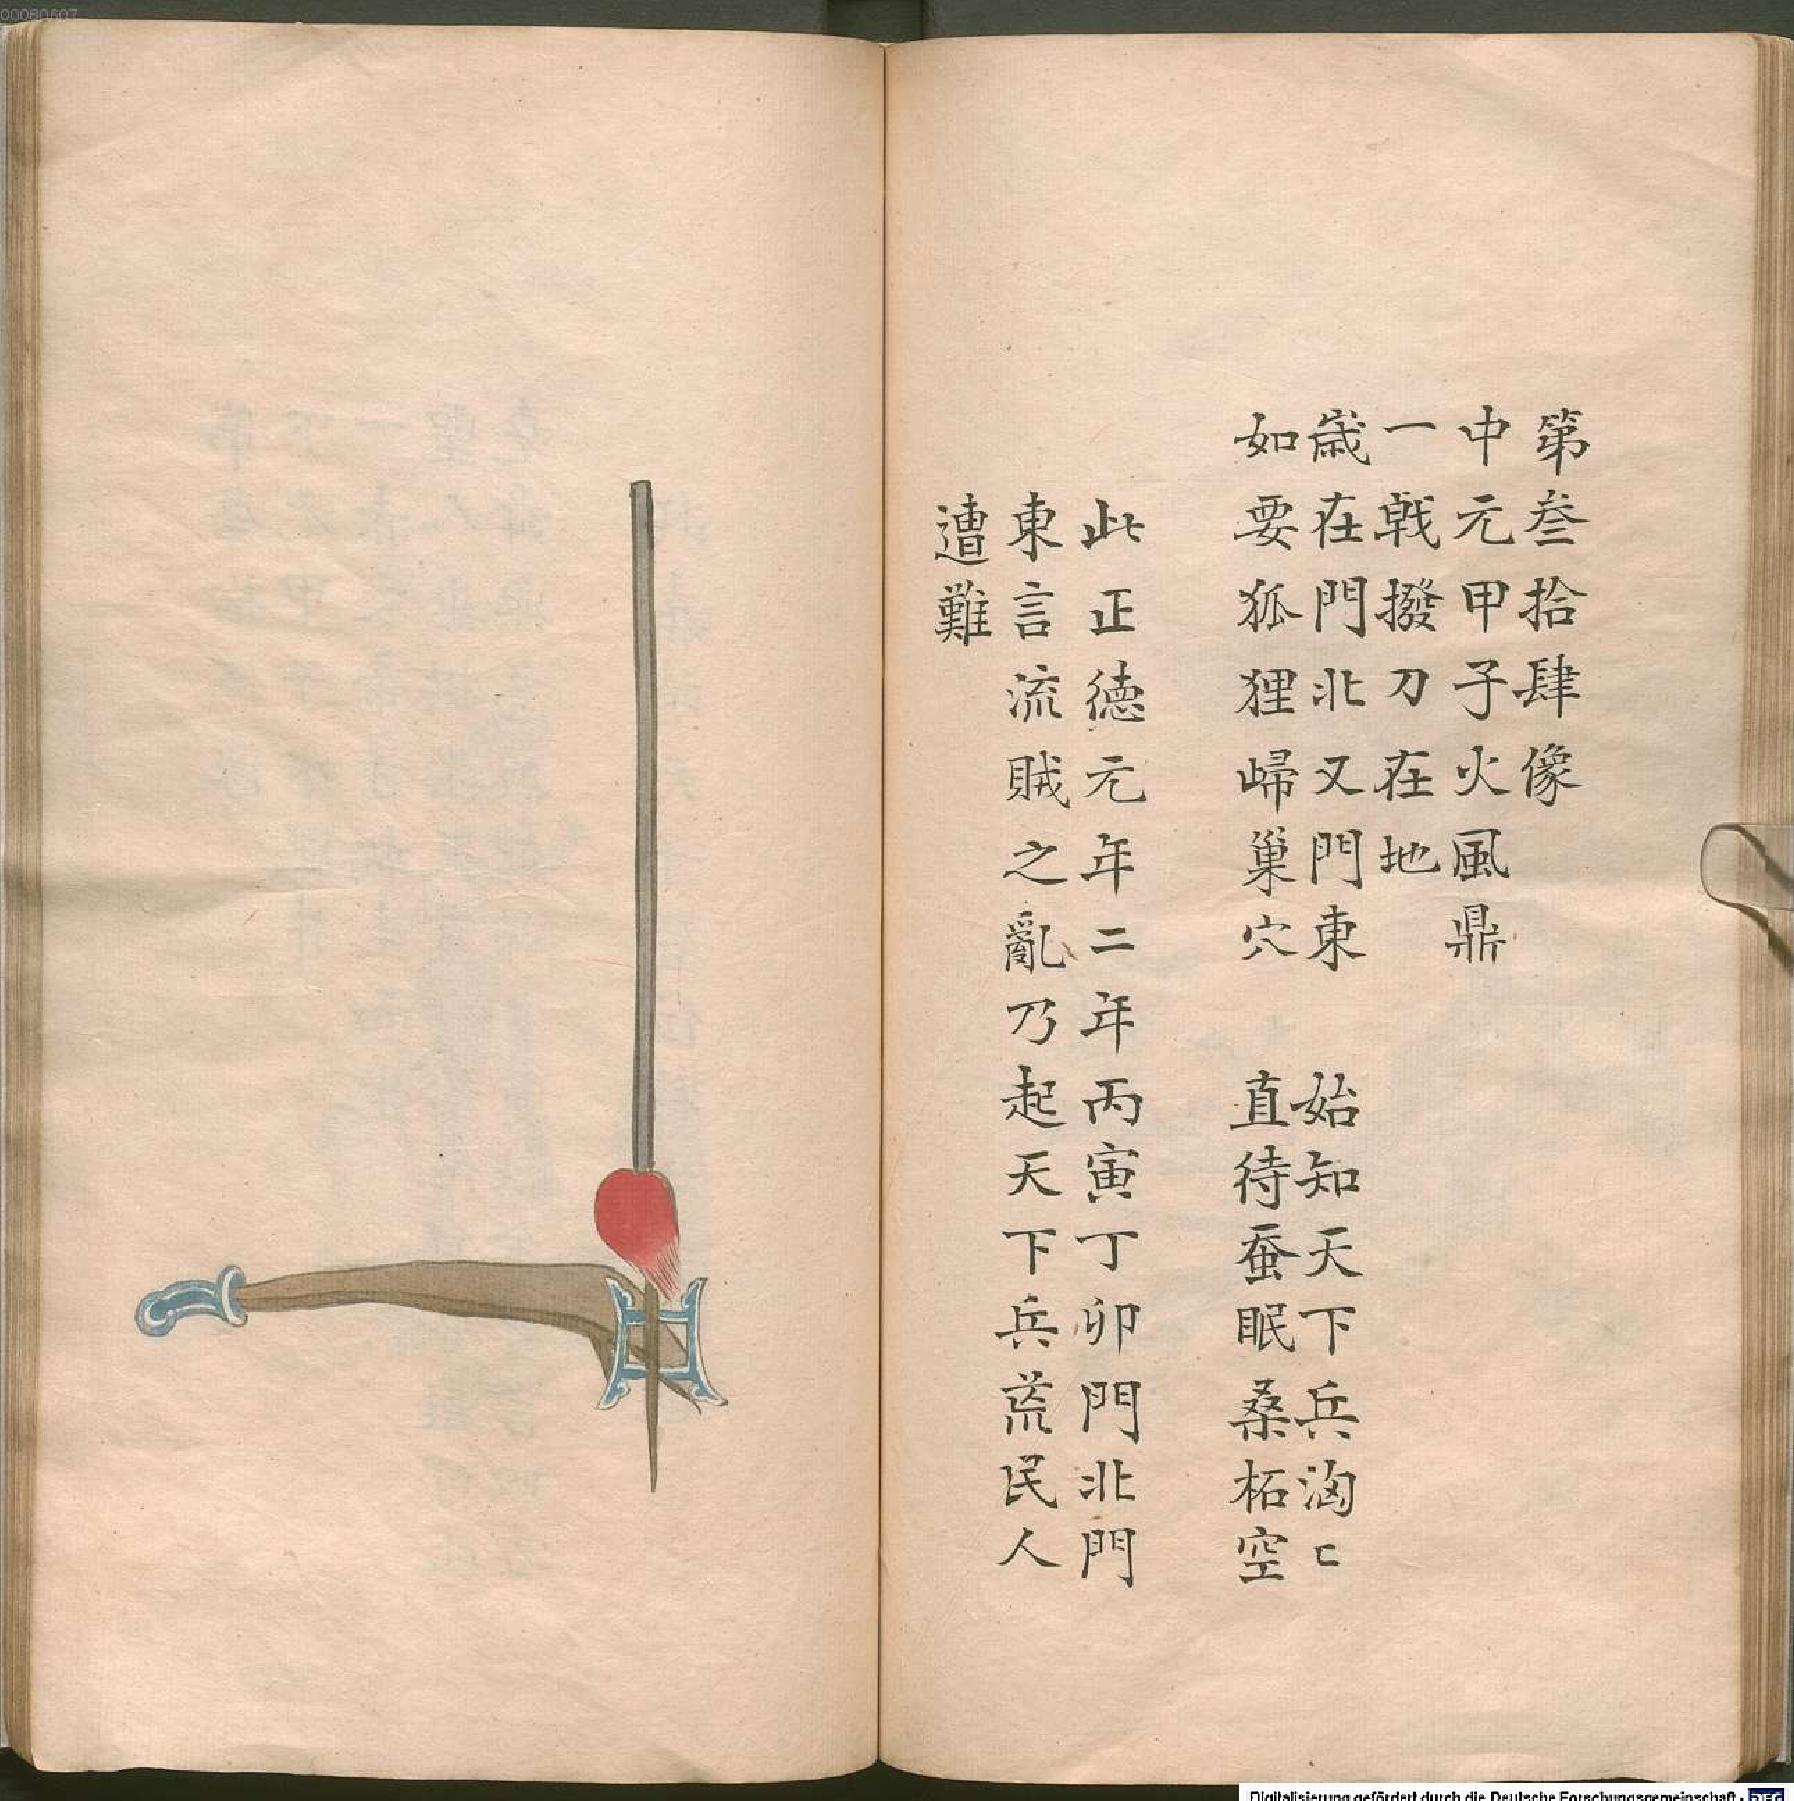 00080507
第叁拾肆像
中元甲子火風鼎
一戟撥刀在地
歳在門北又門東　始知天下兵洶匕
如要狐狸歸巢穴　直待蚕眠桑柘空
此正德元年二年丙寅丁卯門北門
東言流賊之亂乃起天下兵荒民人
遭難
Digitalisierung gefördert durch die Deutsche Forschungsgemeinschaft - DFG